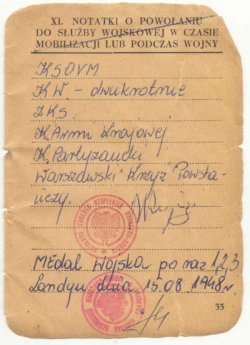 XI. NOTATKI O POWOŁANIU
DO SŁUŻBY WOJSKOWEJ W CZASIE
MOBILIZACJI LUB PODCZAS WOJNY
KSOVM
KW - dwukrotnie
ZKS.
K. Armii Krajowej
K. Partyzancki
Warszawski Krzyż Powsta-
ńczy.
Medal Wojska po raz 1,2,3
Londyn dnia 15.08 1948r.
33